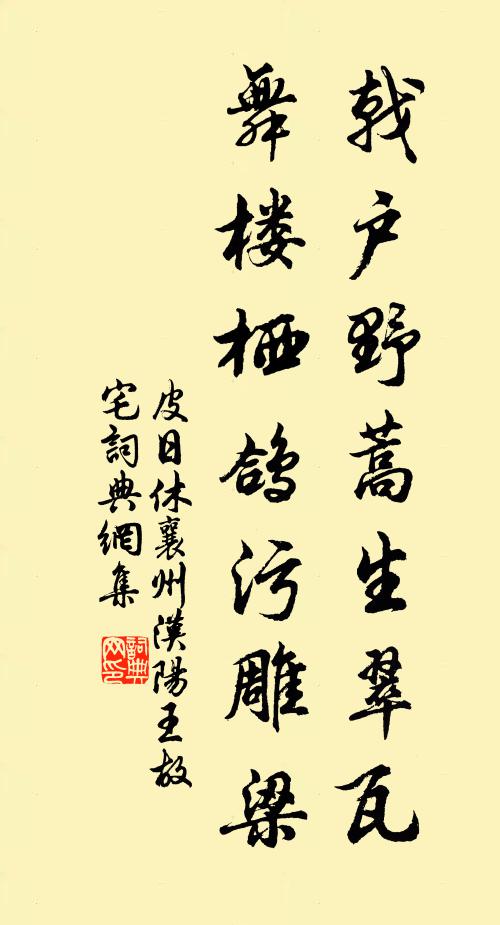 戟户野蒿生翠瓦
舞楼栖鸽污雕梁
皮日休襄州漢陽王故
宅詞典網集
詞典
网印